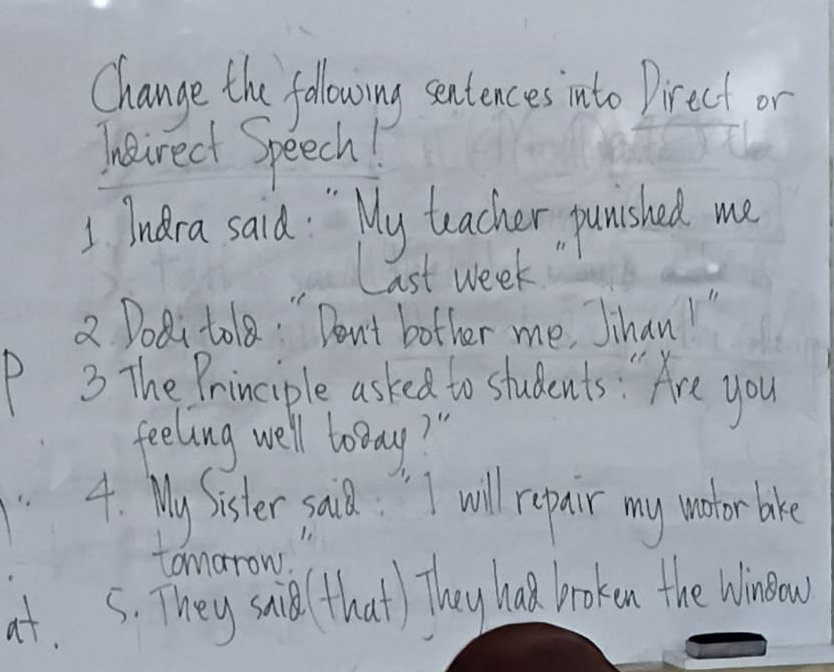 Change the following sentences into Direct or
Indirect Speech!
1. Indra said: "My teacher punished me
Last week."
2 Dodi told: "Don't bother me, Jihan!"
P
3 The Principle asked to students: "Are you
feeling well today?"
4. My Sister said: "I will repair my motor bike
tomorrow."
at.
5. They said (that) They had broken the Window